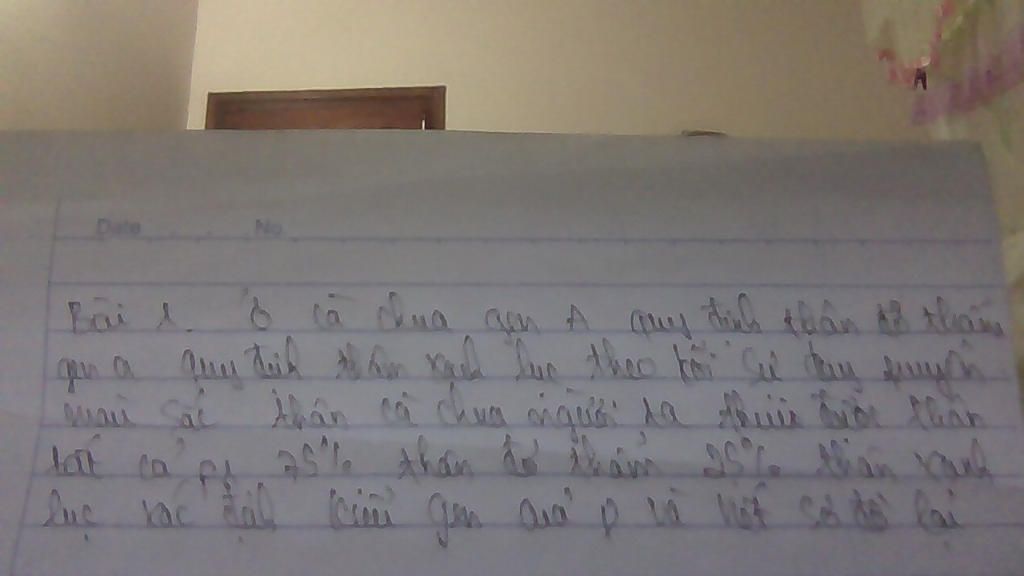 Date No
Bài 1. Ở cà chua gen A quy định thân đỏ thẫm
gen a quy định thân xanh lục theo dõi sự truyền
màu sắc thân cà chua người ta thu được
kết cả F1 75% thân đỏ thẫm 25% thân xanh
lục xác định kiểu gen của P và viết sơ đồ lai